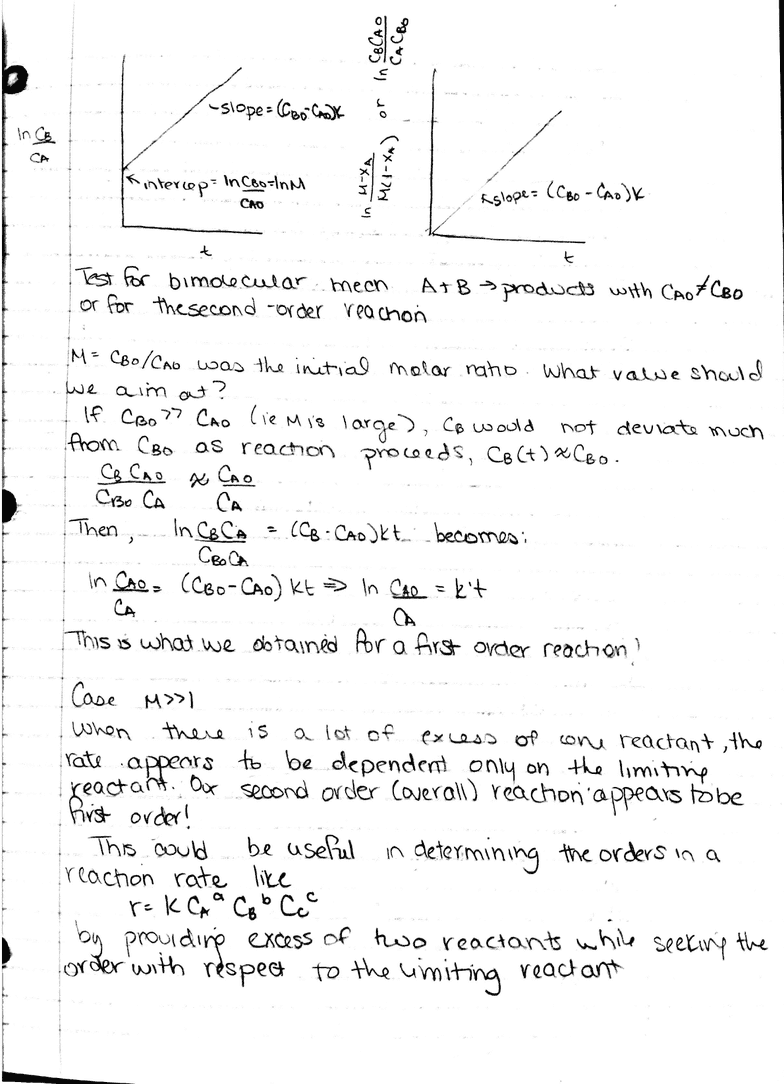 ln CB/CA
slope = (CB0-CA0)k
intercep = ln CB0/CA0 = lnM
t
ln M-XA/M(1-XA) or ln CBCA0/CACB0
slope = (CB0 - CA0)k
t
Test for bimolecular mech A+B → products with CA0≠CB0
or for the second-order reaction
M = CB0/CA0 was the initial molar ratio. What value should
we aim at?
If CB0 >> CA0 (ie M is large), CB would not deviate much
from CB0 as reaction proceeds, CB(t) ≈ CB0.
CB CA0/CB0 CA ≈ CA0/CA
Then, ln CBCA/CB0CA = (CB - CA0)kt becomes:
ln CA0/CA = (CB0-CA0) kt ⇒ ln CA0/CA = k't
This is what we obtained for a first order reaction!
Case M>>1
When there is a lot of excess of one reactant, the
rate appears to be dependent only on the limiting
reactant. Our second order (overall) reaction appears to be
first order!
This could be useful in determining the orders in a
reaction rate like
r = k CA^a CB^b CC^c
by providing excess of two reactants while seeking the
order with respect to the limiting reactant